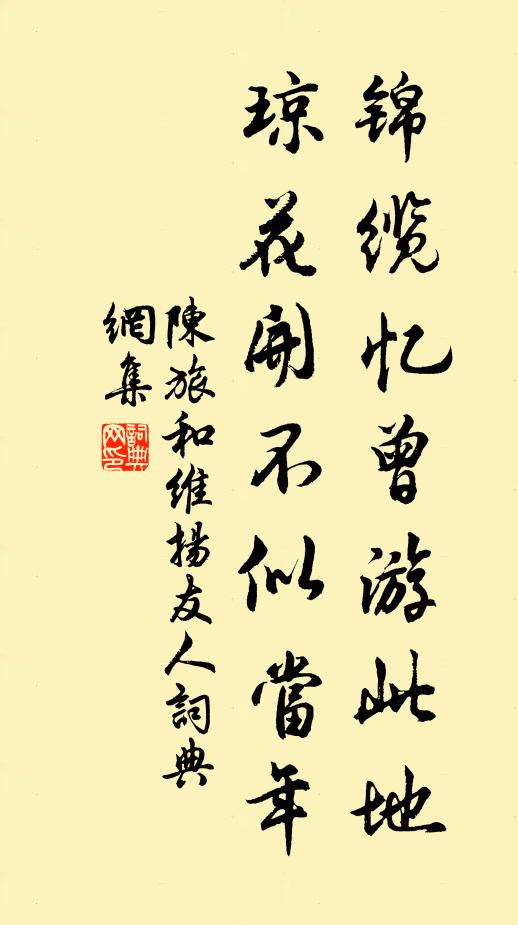 锦缆忆曾游此地
琼花開不似當年
陳旅和維揚友人詞典
網集
詞典
网印